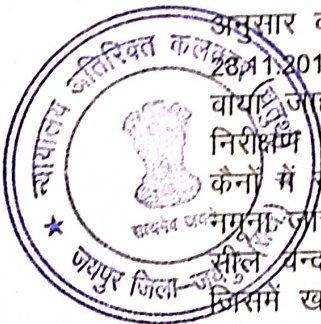 अनुसार
28.11.201
निरीक्षण
कैनों में
नमूना
सील बन्द
जिसमें ख
न्यायालय अतिरिक्त कलक्टर
सत्यमेव जयते
जयपुर जिला-जयपुर